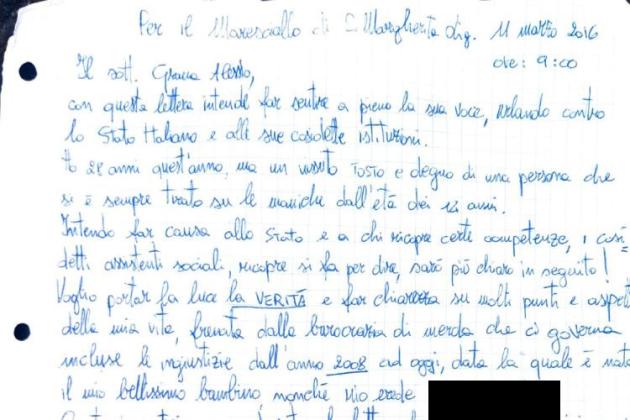 Per il Maresciallo di S. Margherita Lig. 11 marzo 2016
ore: 9:00
Il sott. Grana Alessio,
con questa lettera intende far sentire a pieno la sua voce, urlando contro
lo Stato Italiano e alle sue cosidette istituzioni.
Ho 28 anni quest'anno, ma un vissuto TOSTO e degno di una persona che
si è sempre tirato su le maniche dall'età dei 12 anni.
Intendo far causa allo Stato e a chi ricopre certe competenze, i così
detti assistenti sociali, ricopre si fa per dire, sarò più chiaro in seguito!
Voglio portar fa luce la VERITÀ e far chiarezza su molti punti e aspet
della mia vita, frenata dalla burocrazia di merda che ci governa
incluse le ingiustizie dall'anno 2008 ad oggi, data la quale è nato
il mio bellissimo bambino nonché mio erede